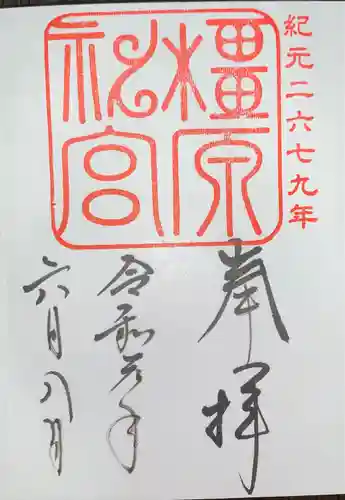 紀元二六七九年
橿原神宮
奉拝
令和元年
六月八日